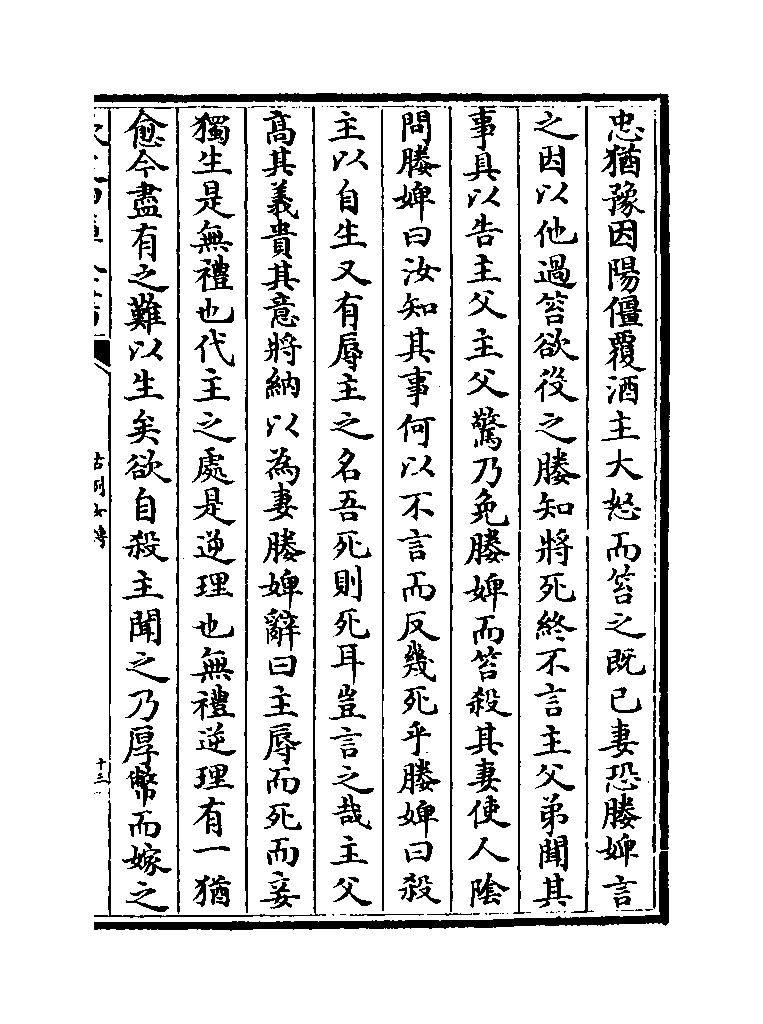 忠猶豫因陽僵覆酒主大怒而笞之既已妻恐媵婢言
之因以他過笞欲役之媵知將死終不言主父弟聞其
事具以告主父主父驚乃免媵婢而笞殺其妻使人陰
問媵婢曰汝知其事何以不言而反幾死乎媵婢曰殺
主以自生又有辱主之名吾死則死耳豈言之哉主父
高其義貴其意將納以為妻媵婢辭曰主辱而死而妾
獨生是無禮也代主之處是逆理也無禮逆理有一猶
愈今盡有之難以生矣欲自殺主聞之乃厚幣而嫁之
古列女傳
十三